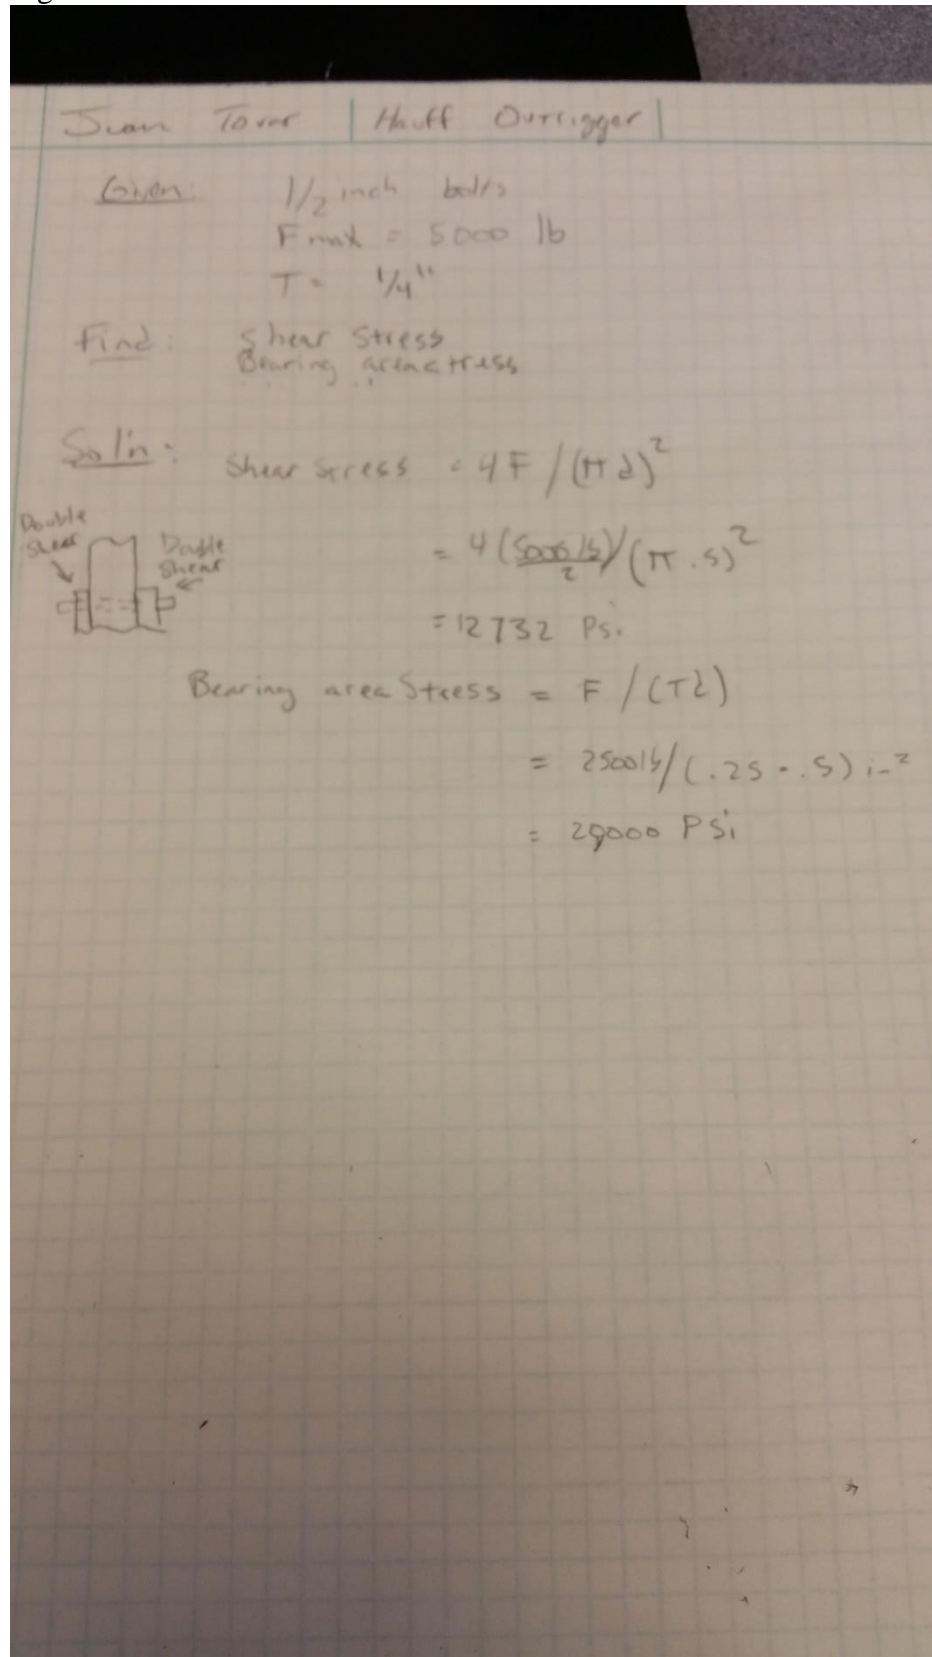 Juan Tovar | Hauff Outrigger |
Given: 1/2 inch bolts
Fmax = 5000 lb
T = 1/4"
Find: Shear Stress
Bearing area stress
Sol'n: Shear stress = 4F/(π d)²
Double Shear
Double Shear
= 4(5000 lb/2)/(π .5)²
= 12732 Psi
Bearing area Stress = F/(Td)
= 2500lb/(.25 - .5) in²
= 20000 PSi